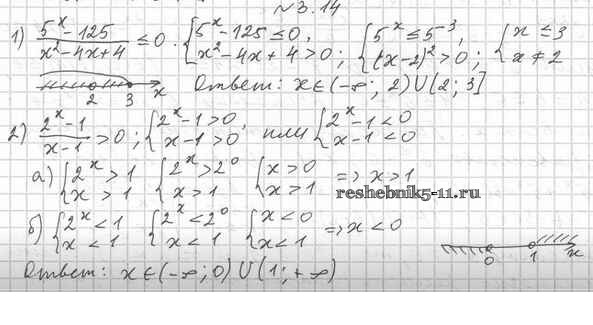 №3.14
1) (5^x - 125)/(x² - 4x + 4) ≤ 0. { 5^x - 125 ≤ 0, x² - 4x + 4 > 0; { 5^x ≤ 5³, (x - 2)² > 0; { x ≤ 3 x ≠ 2
2 3 x Ответ: x ∈ (-∞; 2) ∪ (2; 3]
2) (2^x - 1)/(x - 1) > 0; { 2^x - 1 > 0, x - 1 > 0, или { 2^x - 1 < 0 x - 1 < 0
а) { 2^x > 1 x > 1 { 2^x > 2⁰ x > 1 { x > 0 x > 1 => x > 1
reshebnik5-11.ru
б) { 2^x < 1 x < 1 { 2^x < 2⁰ x < 1 { x < 0 x < 1 => x < 0
0 1 x
Ответ: x ∈ (-∞; 0) ∪ (1; +∞)